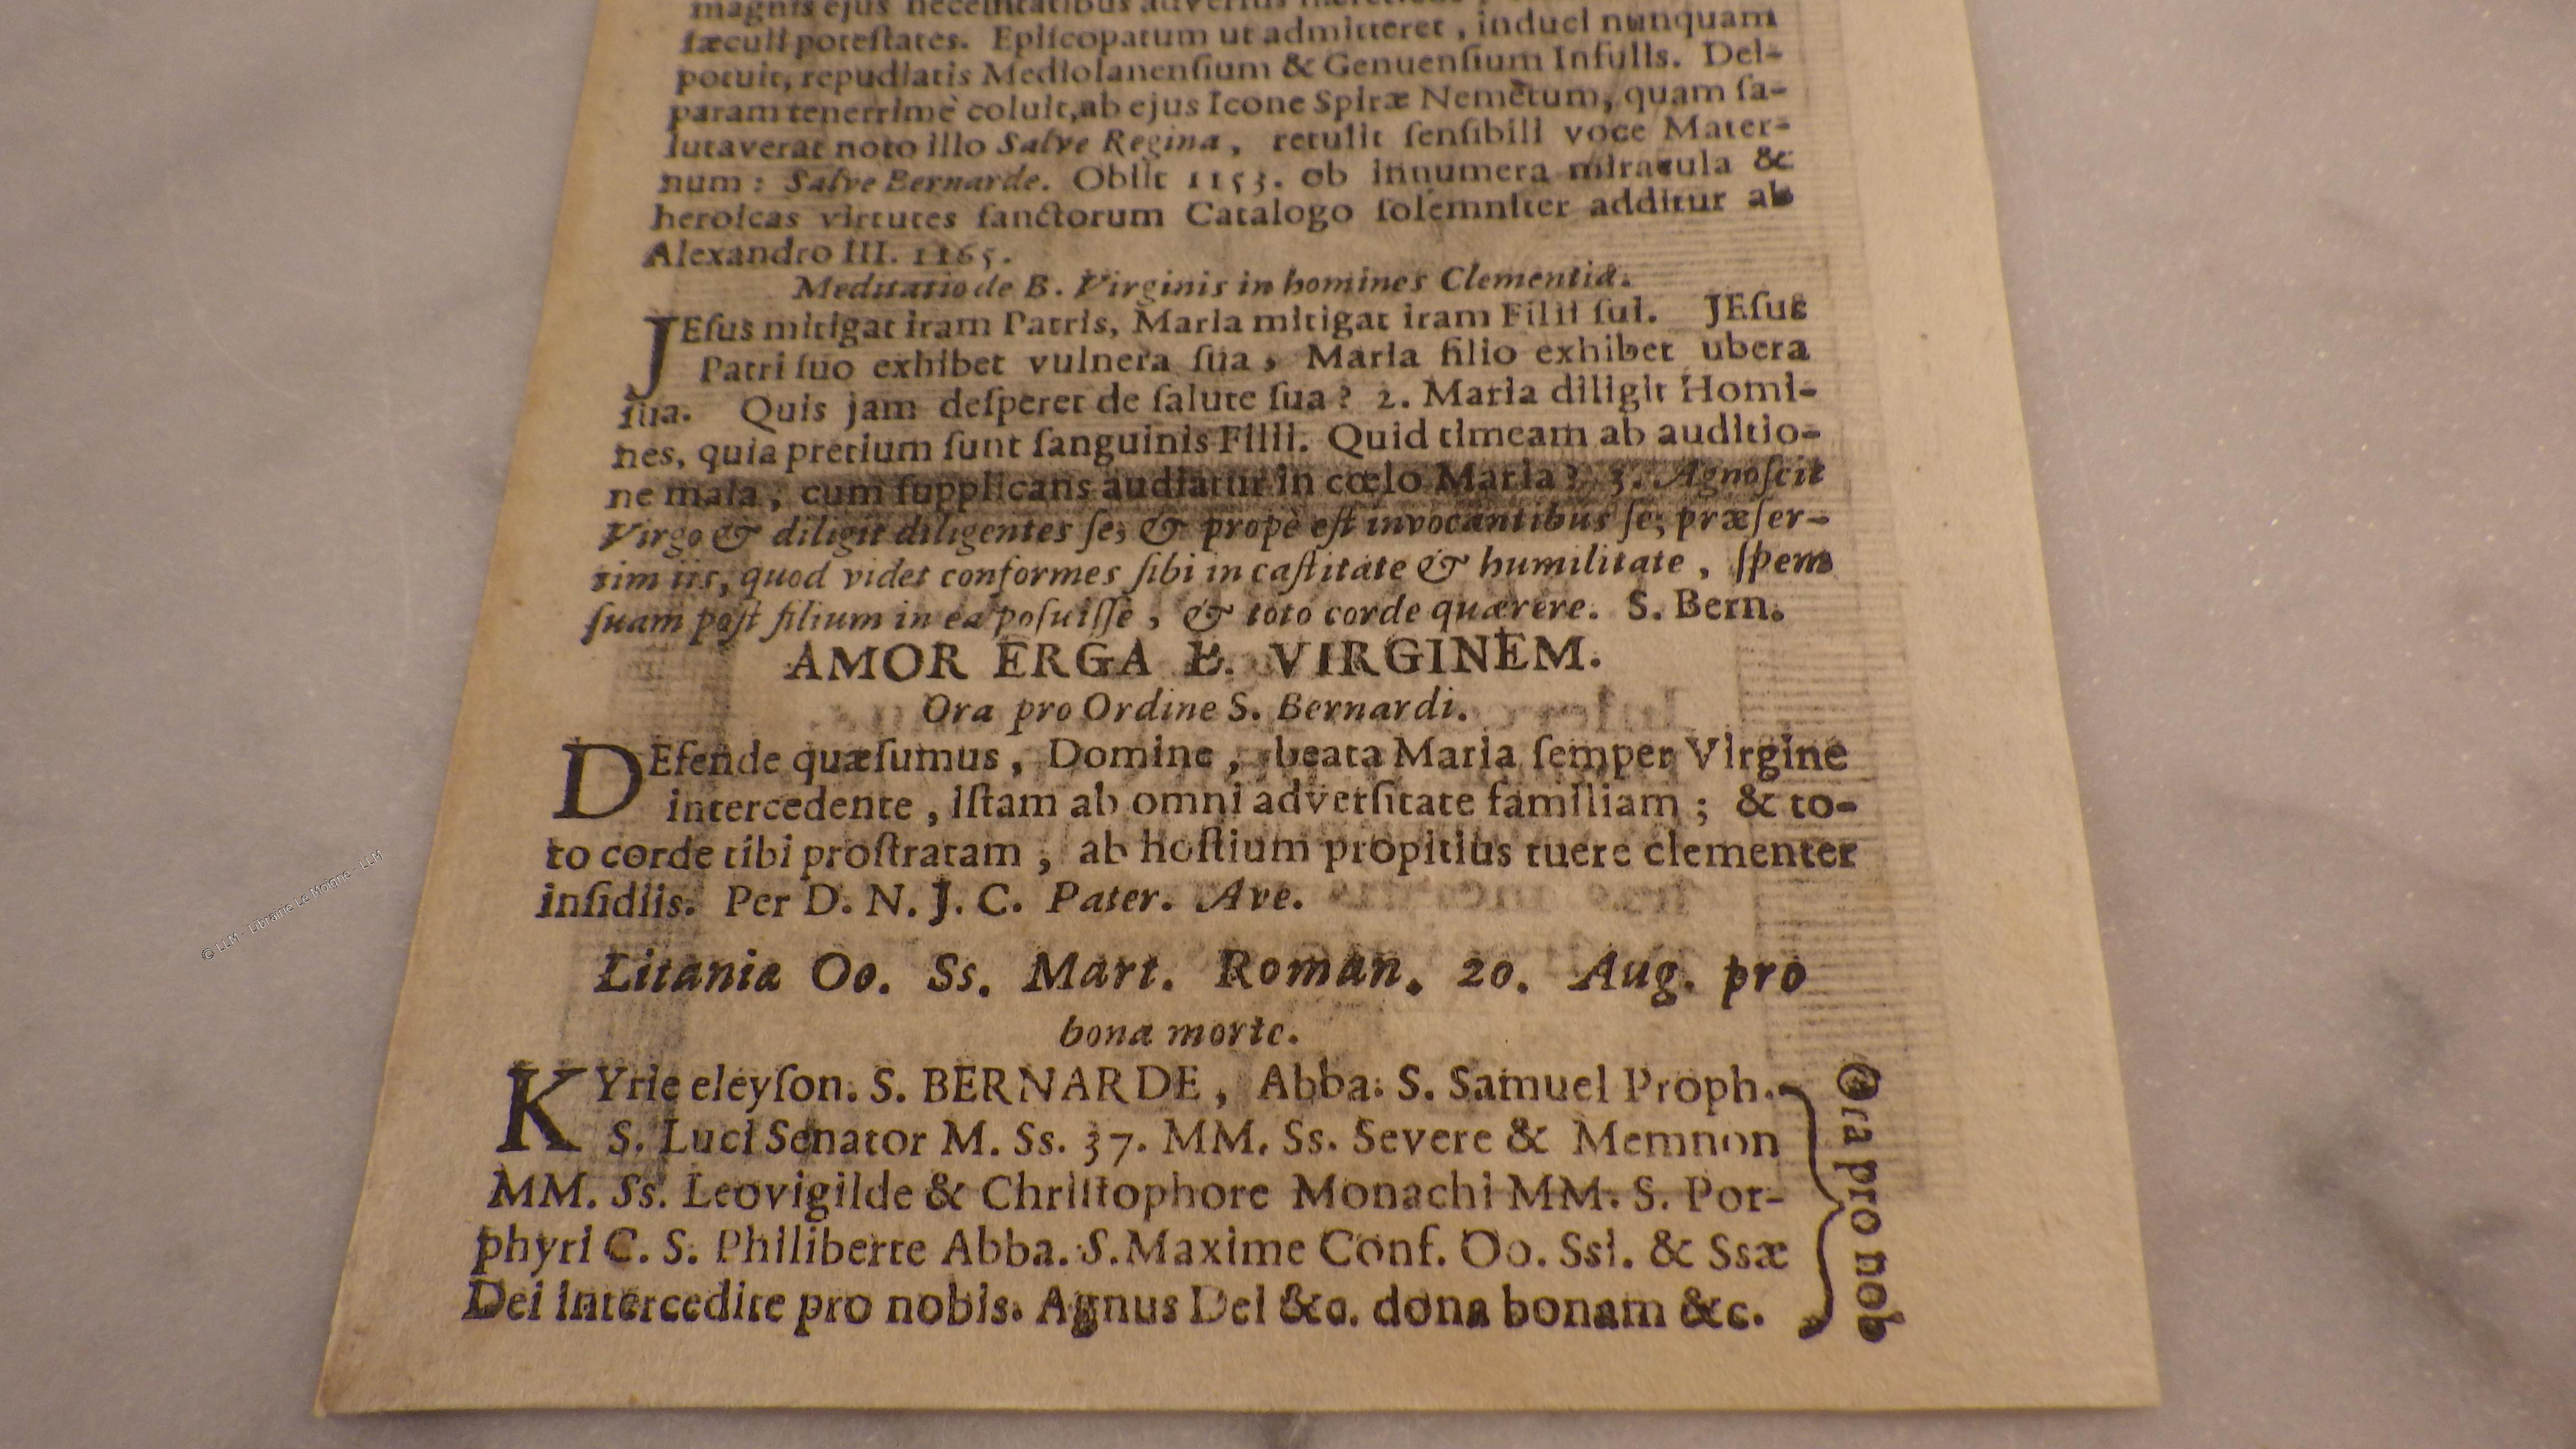 magnis ejus necessitatibus adversus
sæculi potestates. Episcopatum ut admitteret, induci nunquam
potuit, repudiatis Mediolanensium & Genuensium Infulis. Dei-
param tenerrimè coluit, ab ejus Icone Spiræ Nemetum, quam sa-
lutaverat noto illo Salve Regina, retulit sensibili voce Mater-
num: Salve Bernarde. Obiit 1153. ob innumera miracula &
heroicas virtutes sanctorum Catalogo solemniter additur ab
Alexandro III. 1165.
Meditatio de B. Virginis in homines Clementiâ.
JEsus mitigat iram Patris, Maria mitigat iram Filii sui. JEsus
Patri suo exhibet vulnera sua, Maria filio exhibet ubera
sua. Quis jam desperet de salute sua? 2. Maria diligit Homi-
nes, quia pretium sunt sanguinis Filii. Quid timeam ab auditio-
ne mala, cum supplicans audiatur in cœlo Maria? 3. Agnoscit
Virgo & diligit diligentes se, & propè est invocantibus se; præser-
tim iis, quod videt conformes sibi in castitate & humilitate, spem
suam post filium in ea posuisse, & toto corde quærere. S. Bern.
AMOR ERGA B. VIRGINEM.
Ora pro Ordine S. Bernardi.
DEfende quæsumus, Domine, beata Maria semper Virgine
intercedente, istam ab omni adversitate familiam; & to-
to corde tibi prostratam, ab hostium propitius tuere clementer
insidiis. Per D. N. J. C. Pater. Ave.
Litania Oo. Ss. Mart. Roman. 20. Aug. pro
bona morte.
KYrie eleyson. S. BERNARDE, Abba. S. Samuel Proph.
S. Luci Senator M. Ss. 37. MM. Ss. Severe & Memnon
MM. Ss. Leovigilde & Christophore Monachi MM. S. Por-
phyri C. S. Philiberte Abba. S. Maxime Conf. Oo. Ssi. & Ssæ
Dei intercedite pro nobis. Agnus Dei &c. dona bonam &c.
Ora pro nob
© LLM - Librairie Le Moigne - LLM